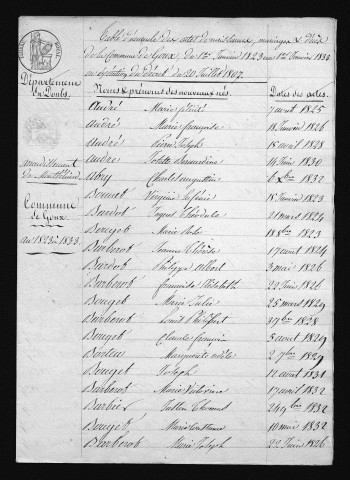 Table décennale des actes de naissances, mariages & Décès
de la Commune de Goux, du 1er Janvier 1823 au 1er Janvier 1833
en exécution du Décret du 20 Juillet 1807.
Département
du Doubs.
arrondissement
de Montbéliard
Commune
de Goux.
An 1823 à 1833.
Noms & prénoms des nouveaux nés. Dates des actes.
André Marie 7 août 1825
André Marie françoise 18 Janvier 1826
André Pierre Joseph 15 avril 1828
André Josette Bernardine 14 Juin 1830
Abry Charles augustin 6 Xbre 1832
Bonnet Virginie 15 Janvier 1823
Bardot Théodule 21 mars 1824
Bouget Marie 18 8bre 1823
Barberot Jeanne Thérèse 17 avril 1824
Bardot Philippe Albert 3 mai 1826
Barberot françoise Elisabeth 22 Juin 1826
Bouget Marie Julie 25 mars 1829
Barberot Louis Philippe 3 7bre 1828
Bouget Claude françois 5 avril 1829
Marguerite 2 7bre 1829
Bouget Joseph 12 avril 1831
Barberot Marie Victorine 17 avril 1832
Barbier 24 9bre 1832
Bouget Marie 10 mai 1832
Barberot Marie Joseph 22 Juin 1826